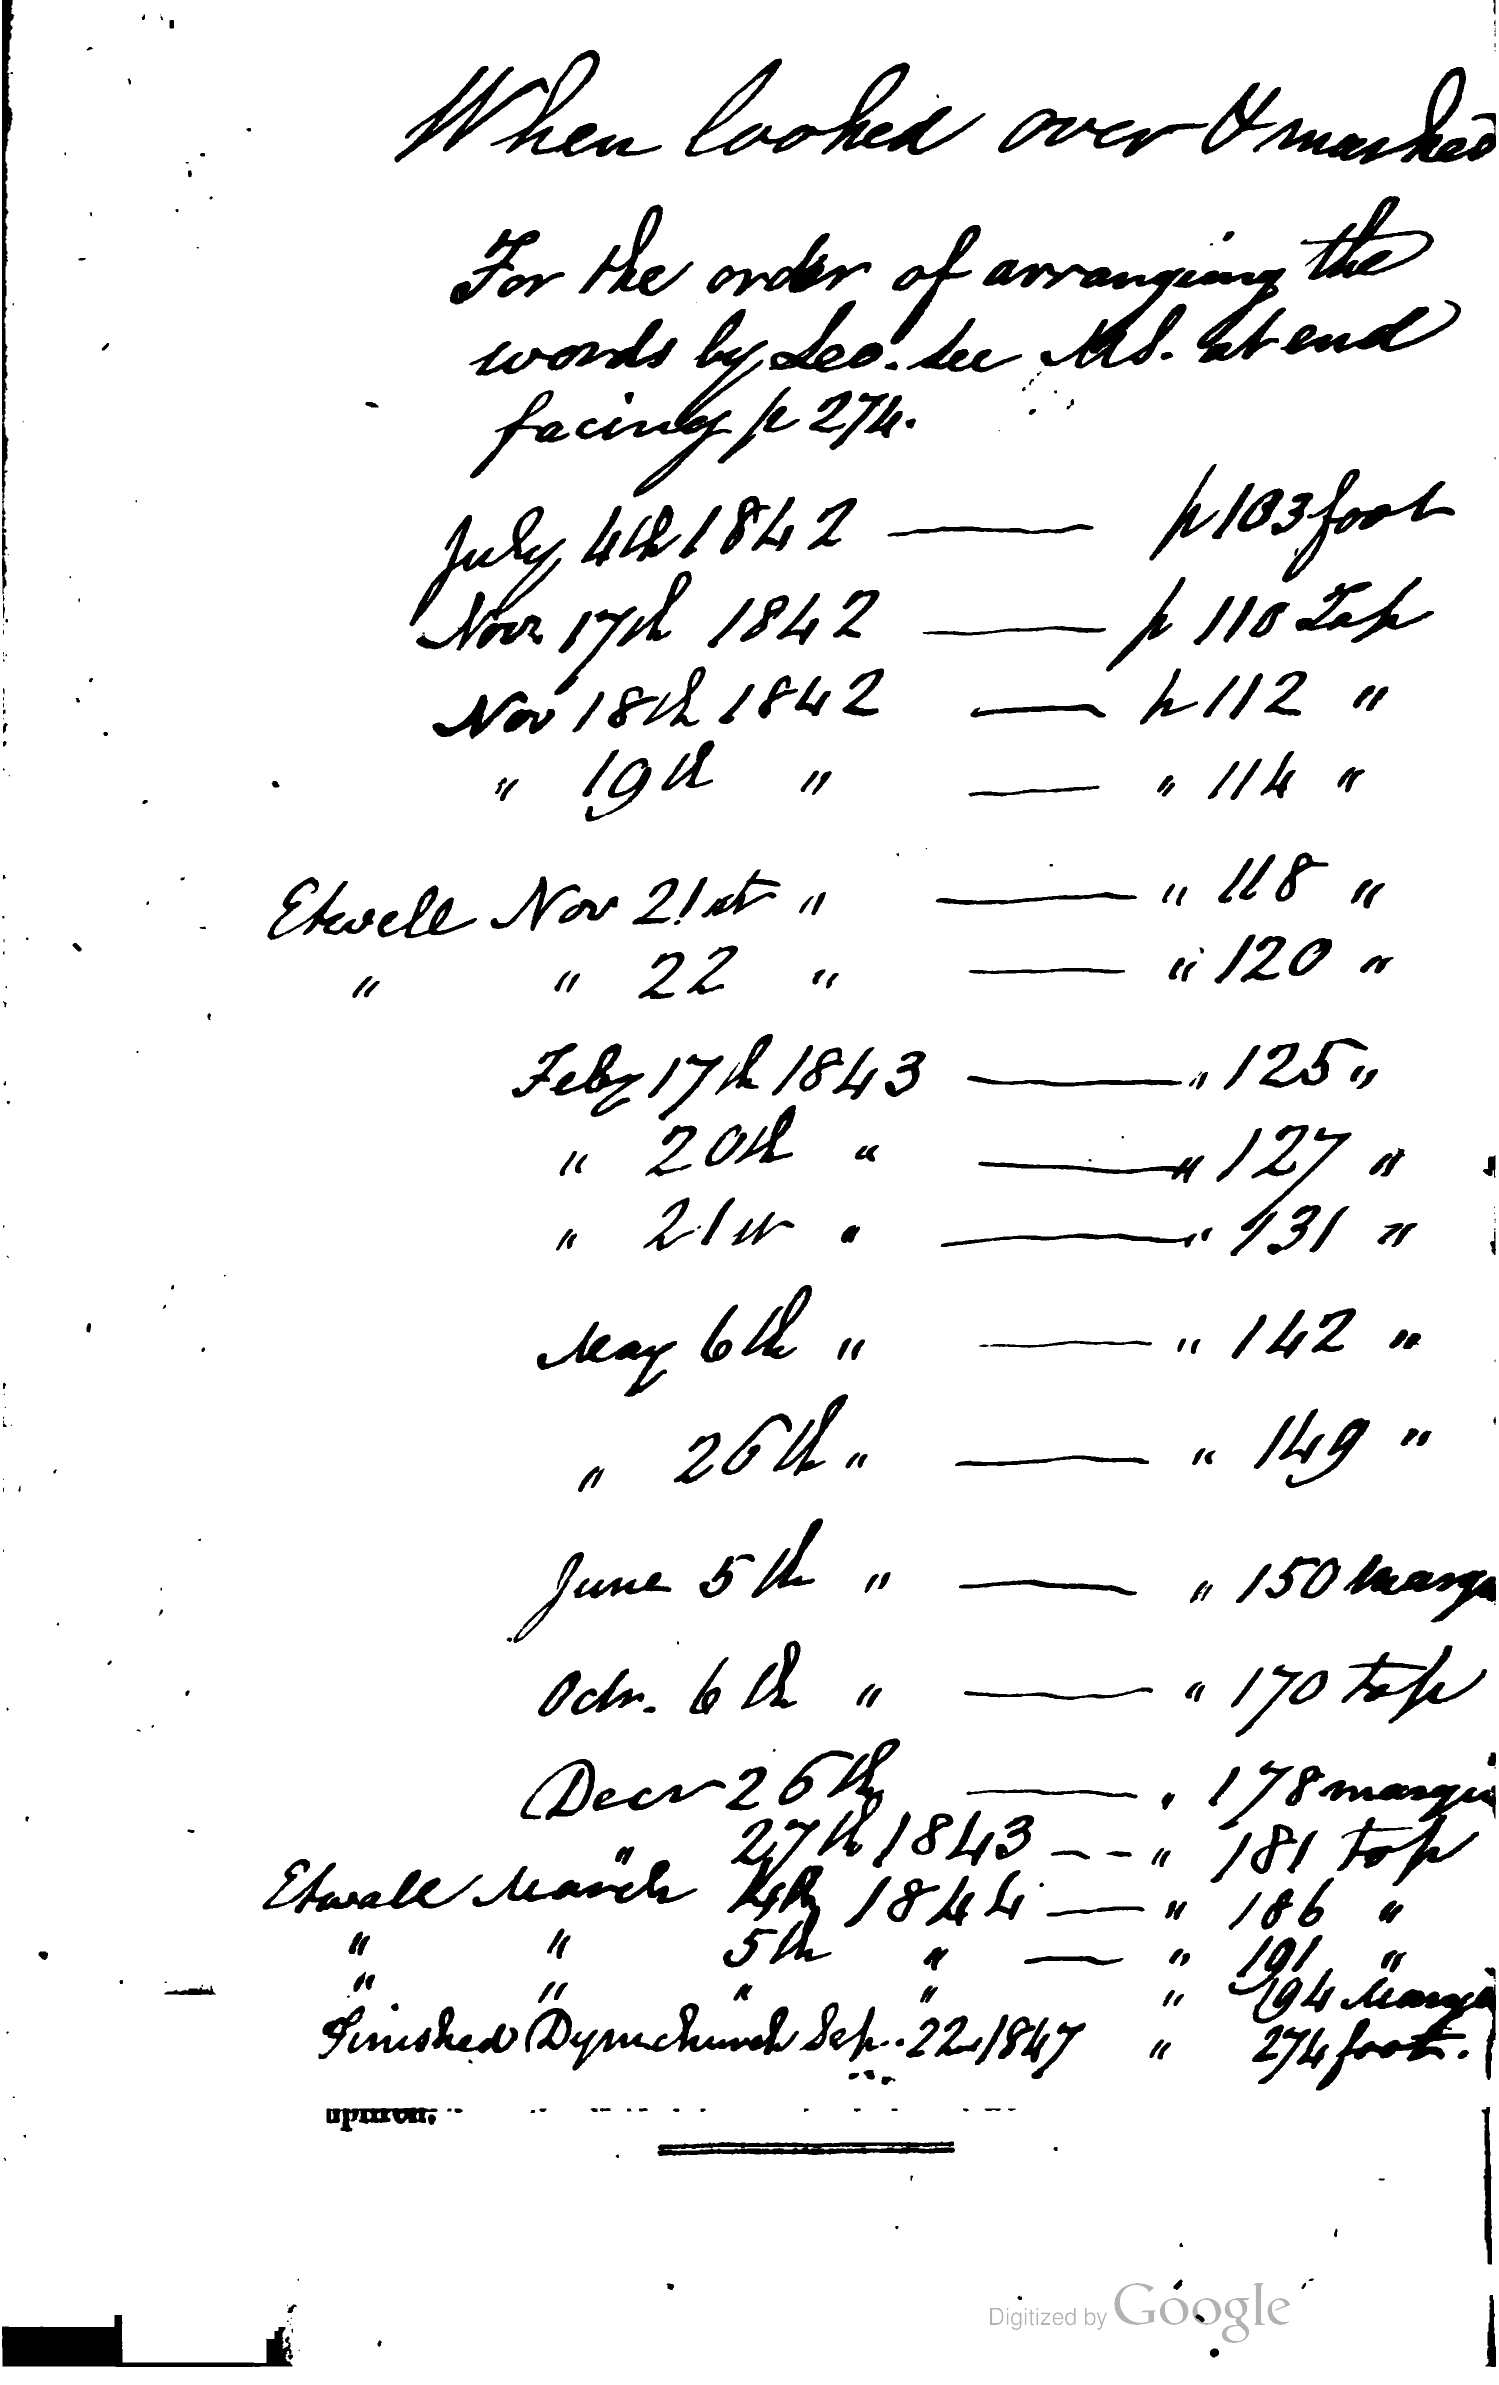 When looked over & marked
For the order of arranging the
words by Leo. see MS. at end
facing p 274.
July 4th 1842 —— p 103 foot
Novr 17th 1842 —— p 110 Top
Nov 18th 1842 —— p 112 "
" 19th " —— " 114 "
Etwell Nov 21st " —— " 118 "
" " 22 " —— " 120 "
Feby 17th 1843 —— " 125 "
" 20th " —— " 127 "
" 21st " —— " 131 "
May 6th " —— " 142 "
" 26th " —— " 149 "
June 5th " —— " 150 marg
Octr. 6th " —— " 170 top
Decr 26th —— " 178 margin
" 27th 1843 –– " 181 top
Etwall March 4th 1844 — " 186 "
" " 5th " — " 191 "
" " " " " 194 Marg
Finished Dymchurch Sep. 22 1847 " 274 foot.
Digitized by Google